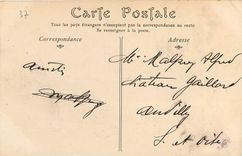 37
Carte Postale
Tous les pays étrangers n'acceptent pas la correspondance au recto
Se renseigner à la poste.
Correspondance
Adresse
Mr Malfroy Alfred
château Gaillard
Andilly
S. et Oise